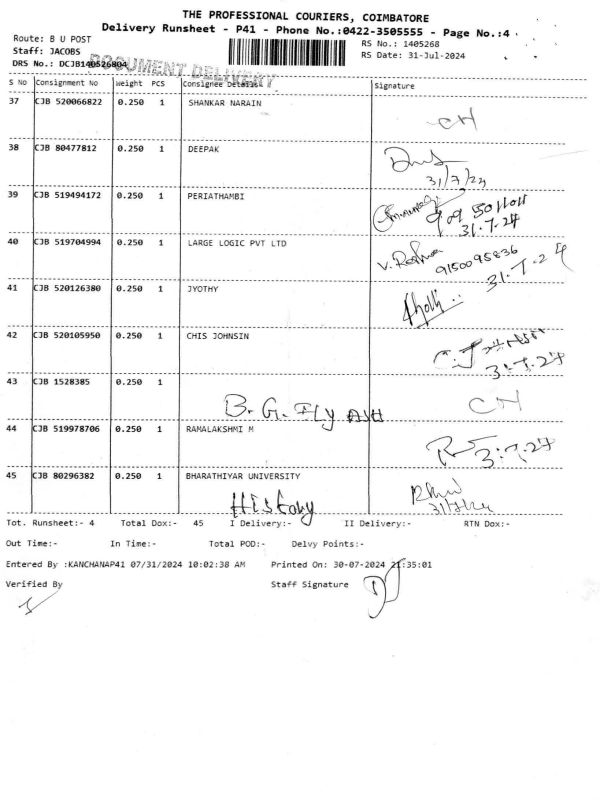 THE PROFESSIONAL COURIERS, COIMBATORE
Delivery Runsheet - P41 - Phone No.:0422-3505555 - Page No.:4
Route: B U POST
RS No.: 1405268
Staff: JACOBS
RS Date: 31-Jul-2024
DRS No.: DCJB140526804
DOCUMENT DELIVERY
S No Consignment No Weight PCS Consignee Details Signature
37 CJB 520066822 0.250 1 SHANKAR NARAIN CH
38 CJB 80477812 0.250 1 DEEPAK
31/7/24
39 CJB 519494172 0.250 1 PERIATHAMBI
31.7.24
40 CJB 519704994 0.250 1 LARGE LOGIC PVT LTD
9150095836
31.7.24
41 CJB 520126380 0.250 1 JYOTHY
42 CJB 520105950 0.250 1 CHIS JOHNSIN
31.7.24
43 CJB 1528385 0.250 1
B. G. Fly ASH CH
44 CJB 519978706 0.250 1 RAMALAKSHMI M
45 CJB 80296382 0.250 1 BHARATHIYAR UNIVERSITY
History 31/7/24
Tot. Runsheet:- 4 Total Dox:- 45 I Delivery:- II Delivery:- RTN Dox:-
Out Time:- In Time:- Total POD:- Delvy Points:-
Entered By :KANCHANAP41 07/31/2024 10:02:38 AM Printed On: 30-07-2024 21:35:01
Verified By Staff Signature